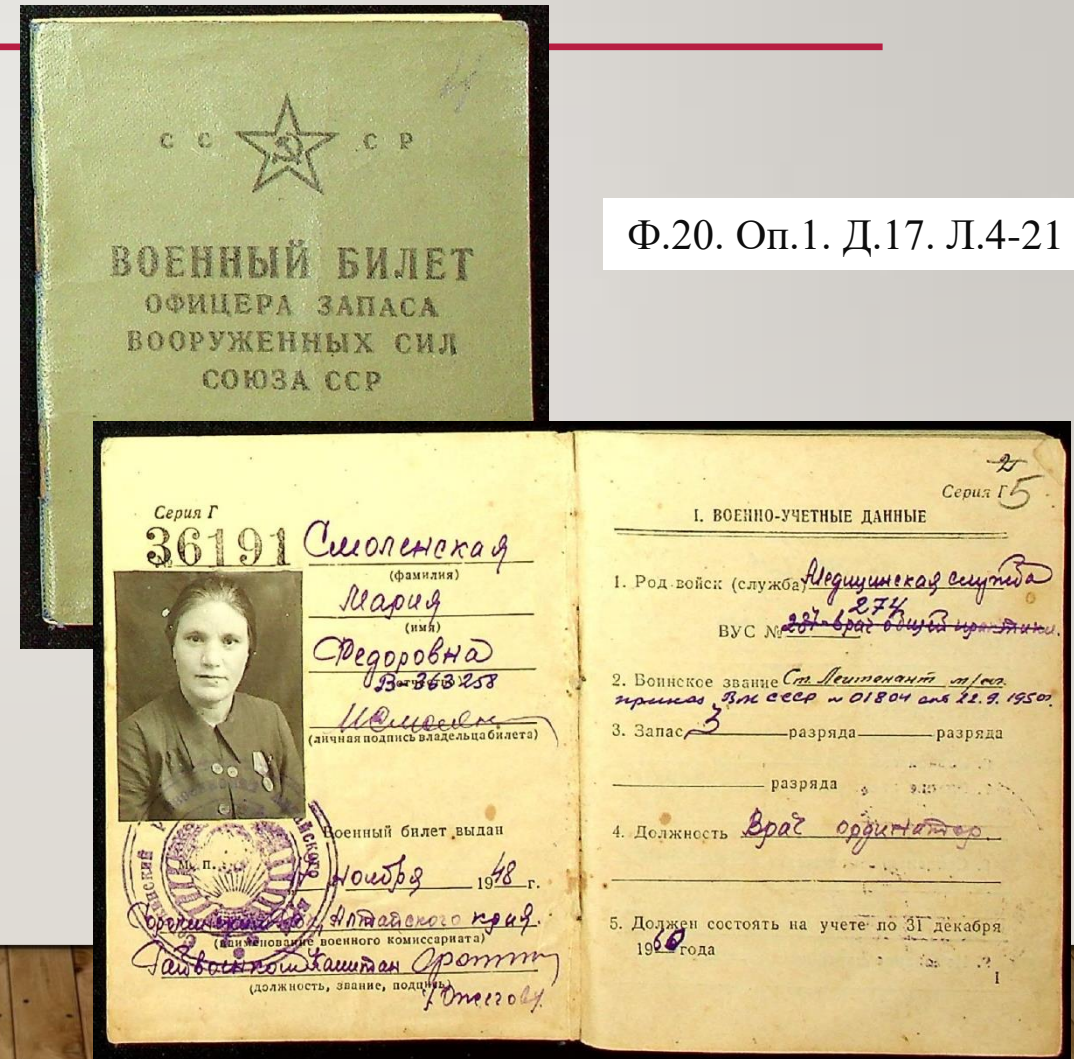 СС СР
ВОЕННЫЙ БИЛЕТ
ОФИЦЕРА ЗАПАСА
ВООРУЖЕННЫХ СИЛ
СОЮЗА ССР
Ф.20. Оп.1. Д.17. Л.4-21
Серия Г
36191
Смоленская
(фамилия)
Мария
(имя)
Федоровна
В-363258
(личная подпись владельца билета)
М. П.
Военный билет выдан
ноября 1948 г.
Алтайского края.
(наименование военного комиссариата)
Райвоенком Капитан
(должность, звание, подпись)
2
Серия Г 5
I. ВОЕННО-УЧЕТНЫЕ ДАННЫЕ
1. Род войск (служба) Медицинская служба
274
ВУС № врач общей практики.
2. Воинское звание Ст. Лейтенант м/сл.
приказ ВМ СССР № 01804 от 22.9.1950г.
3. Запас 3 разряда разряда
разряда
4. Должность Врач ординатор
5. Должен состоять на учете по 31 декабря
1960 года
1